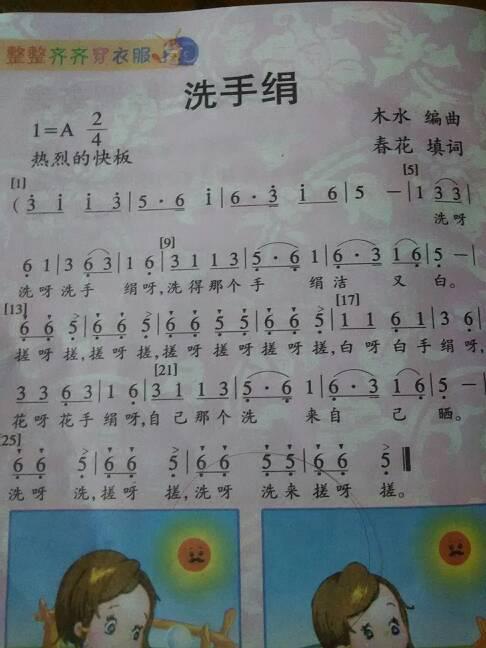 整整齐齐穿衣服
洗手绢
1=A 2/4
木水 编曲
热烈的快板
春花 填词
[1] [5]
( 3̇ i̇ i̇ 3̇ | 5 · 6 i̇ | 6 · 3̇ i̇ 6 | 5 — | 1 3 3 |
洗呀
[9]
6̣ 1 | 3 6̣ 3 | 1 6̣ | 3 1 1 3 | 5̣ · 6̣ 1 | 6̣ · 3 1 6̣ | 5̣ — |
洗呀洗手 绢呀,洗得那个手 绢洁 又 白。
[13] [17]
6̣ 6̣ 5̣ | 6̣ 6̣ 5̣ | 6̣ 6̣ 5̣ 5̣ | 6̣ 6̣ 5̣ | 1 1 6̣ 1 | 3 6̣ |
搓呀搓,搓呀搓,搓呀搓呀搓呀搓,白呀白手绢呀,
[21]
3 3 6̣ 3 | 1 6̣ | 3 1 1 3 | 5̣ · 6̣ 1 | 6̣ · 3 1 6̣ | 5̣ — |
花呀花手绢呀,自己那个洗 来自 己 晒。
[25]
6̣ 6̣ 5̣ | 6̣ 6̣ 5̣ | 6̣ 6̣ 5̣ 5̣ | 6̣ 6̣ 5̣ ‖
洗呀 洗,搓呀 搓,洗呀 洗来搓呀 搓。